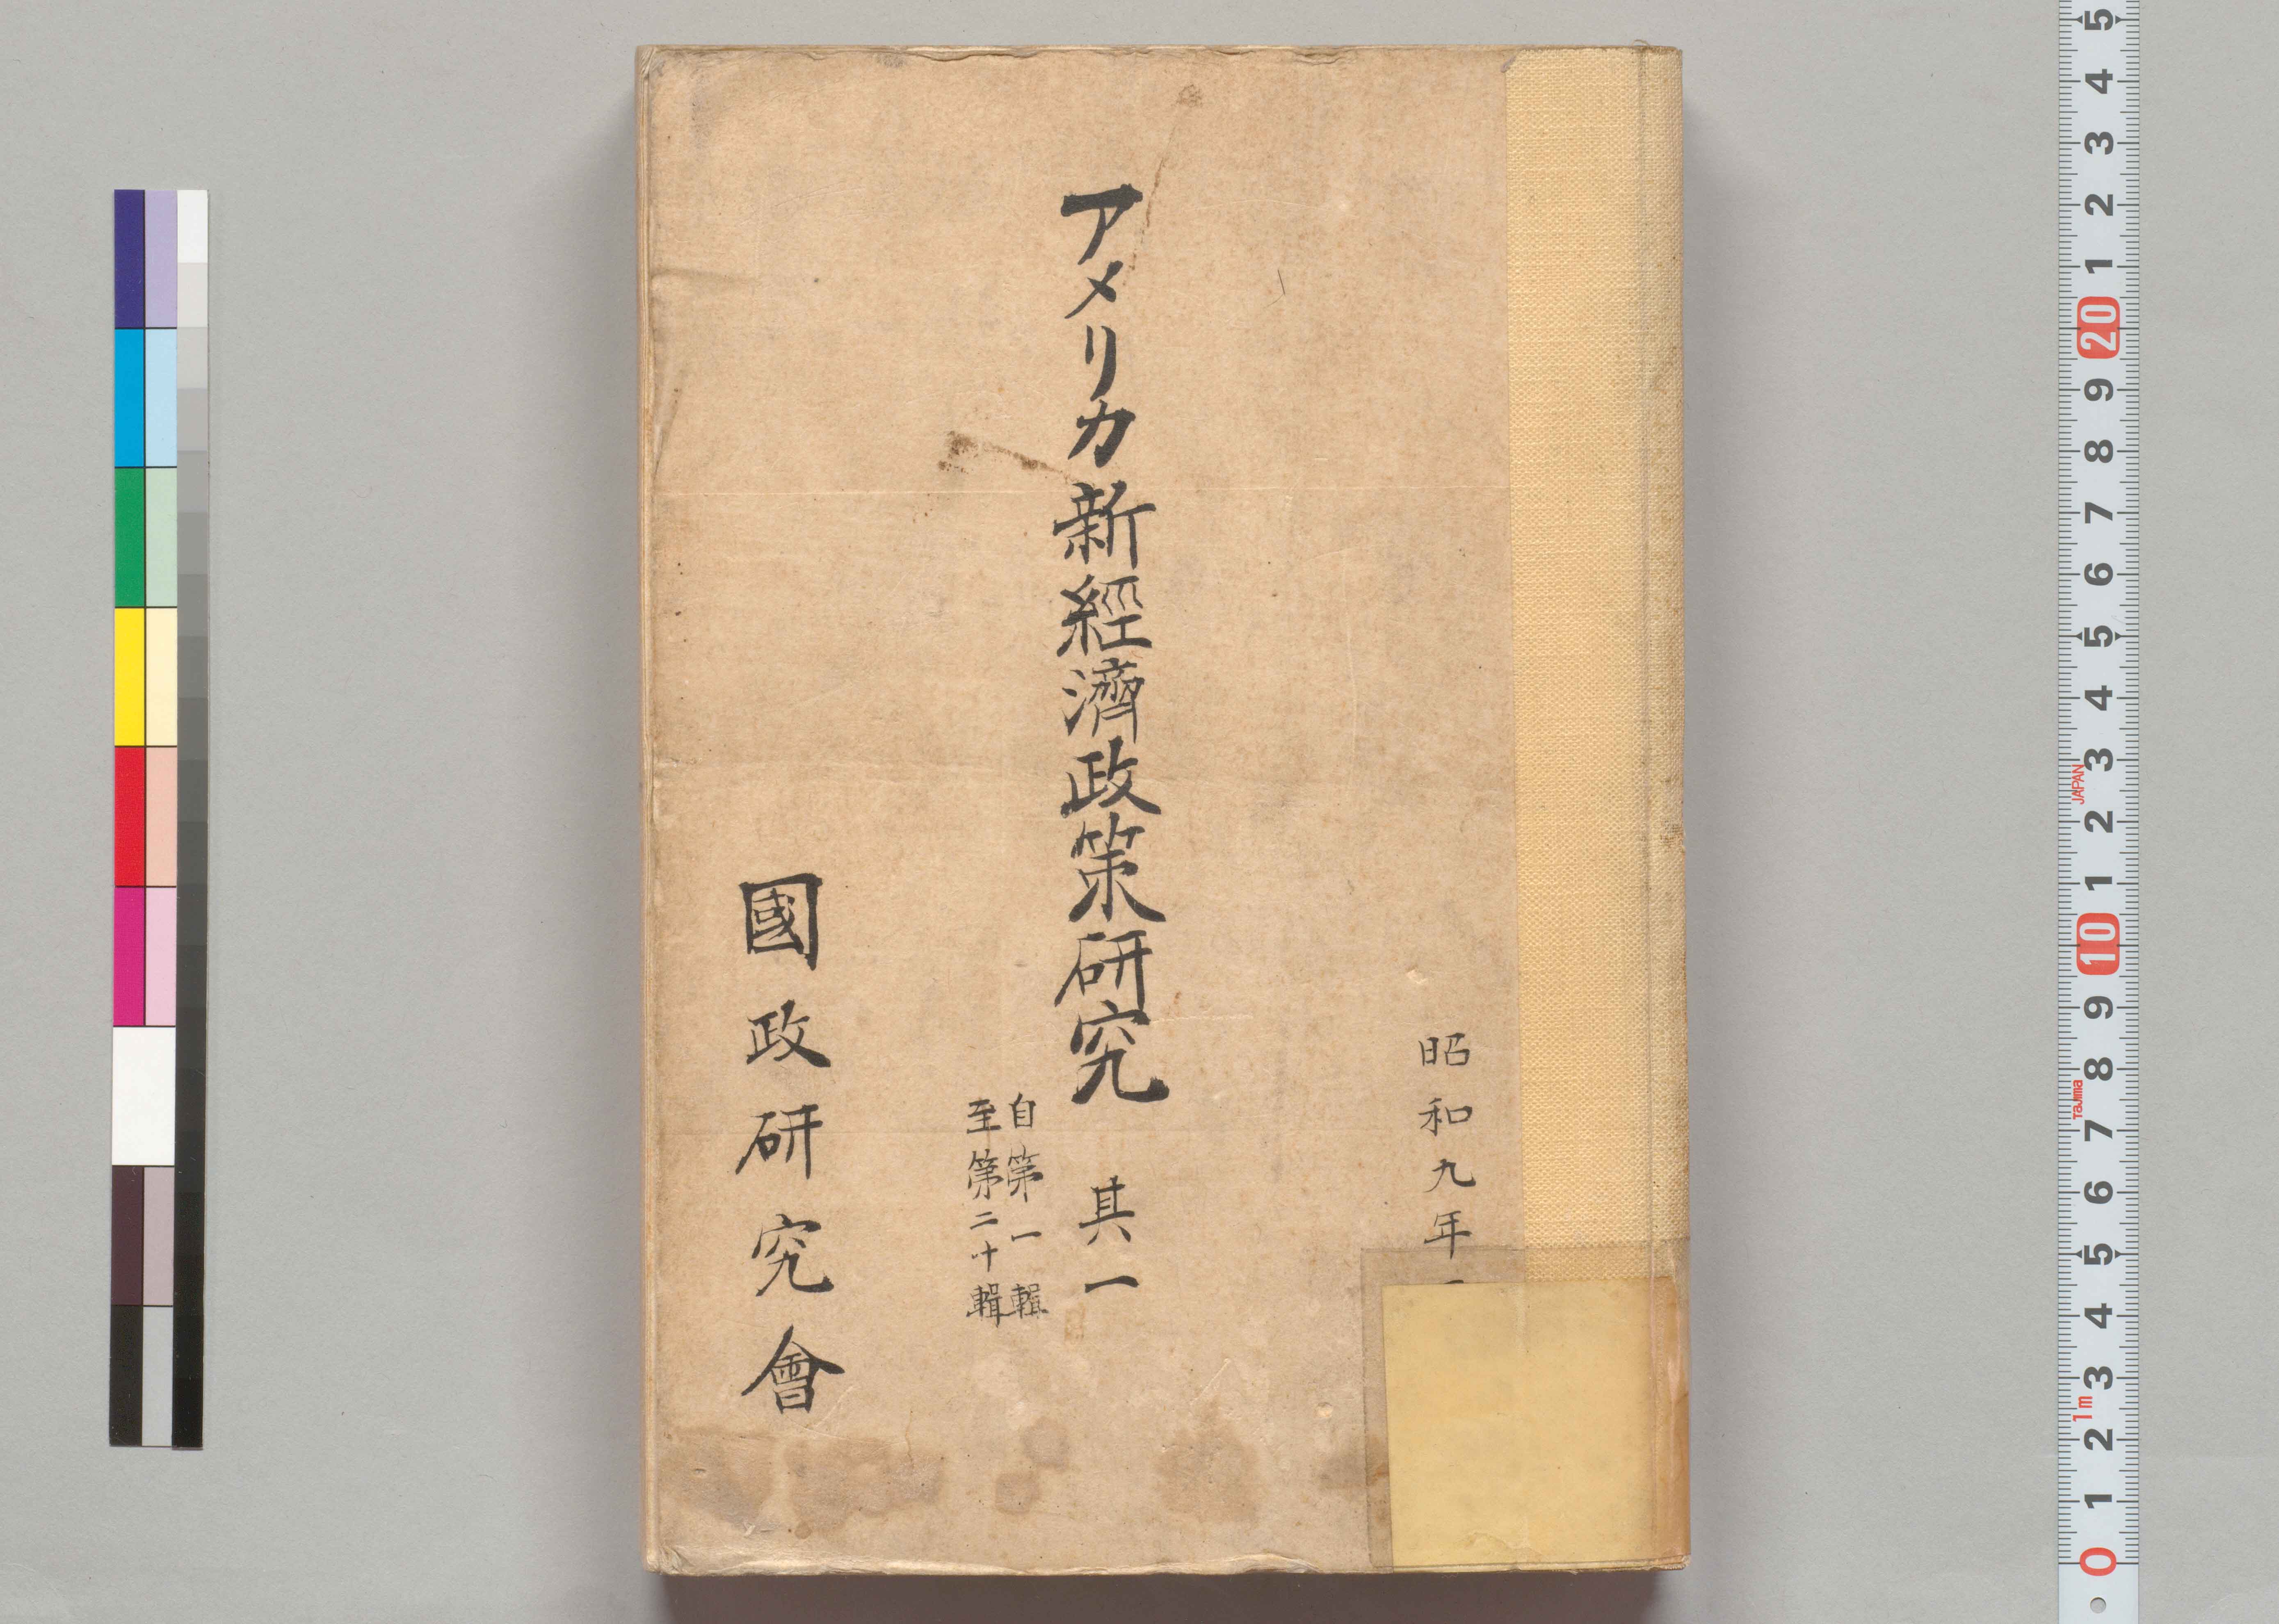 昭和九年
アメリカ新經濟政策研究 其一
自第一輯
至第二十輯
國政研究會
5 4 3 2 1 20 9 8 7 6 5 4 3 2 1 10 9 8 7 6 5 4 3 2 1 0
JAPAN
Tajima
1m